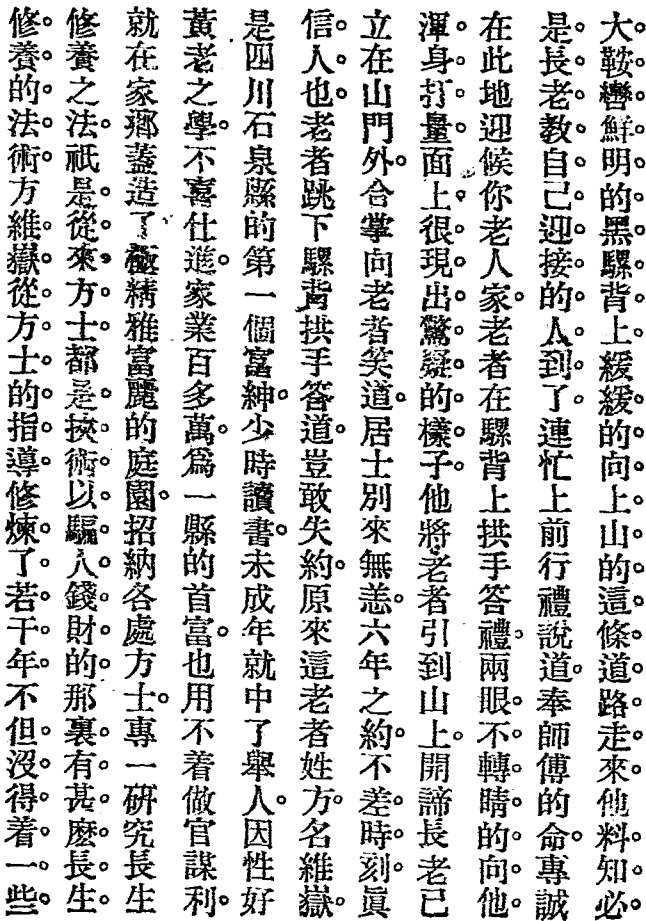 大。鞍轡鮮明的黑騾背上緩緩的向上山的這條道路走來他料知必。
是。長。老。教。自。己。迎。接。的。人。到。了。連忙上前行禮說道。奉師傅的命。專誠
在此地迎候你老人家。老者在騾背上拱手答禮。兩眼。不。轉。睛。的。向。他。
渾。身。打。量。面。上。很。現。出。驚。疑。的。樣。子。他將老者引到山上。開諦長老已
立在山門外。合掌向老者笑道。居士別來無恙。六年之約。不差時刻。眞
信。人。也。老者跳下騾背拱手答道。豈敢失約。原來這老者姓方。名維嶽。
是四川石泉縣的第一個富紳。少時讀書。未成年就中了舉人。因性好
黃老之學。不喜仕進。家業百多萬。爲一縣的首富。也用不着做官謀利。
就在家鄉蓋造了極精雅富麗的庭園。招納各處方士。專一硏究長生
修養之法。祇是。從。來。方。士。都。是。挾。術。以。騙。人。錢。財。的。那。裏。有。甚。麽。長。生。
修。養。的。法。術。方維嶽。從。方。士。的。指。導。修。煉。了。若。干。年。不。但。沒。得。着。一。些。